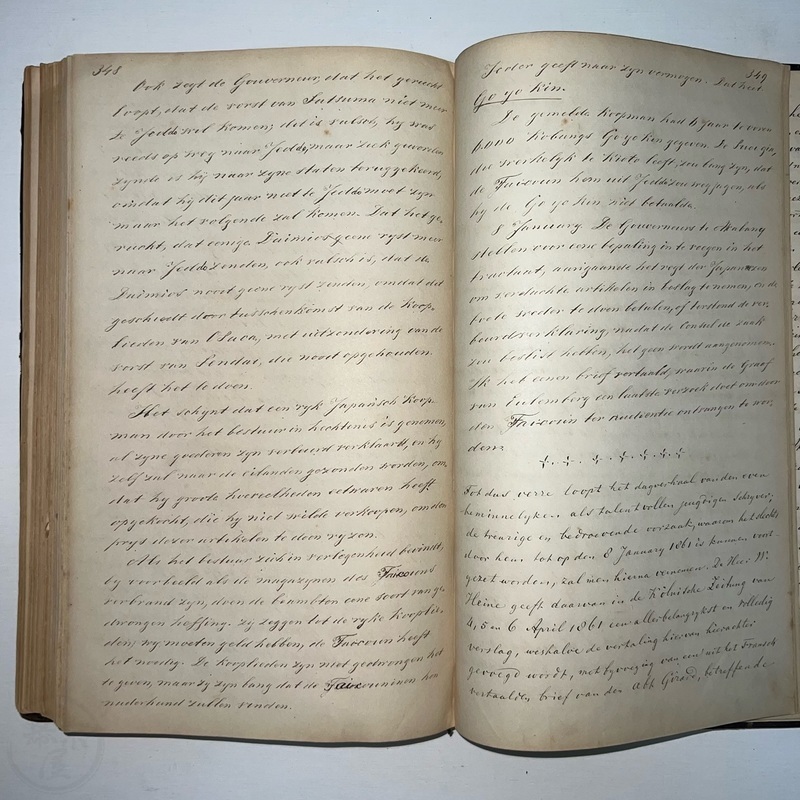 348
Ook zegt de Gouverneur, dat het gerucht
loopt, dat de vorst van Satsuma niet meer
te Jeddo wil komen; dit is valsch, hij was
reeds op weg naar Jeddo, maar ziek geworden
zynde is hij naar zyne staten teruggekeerd,
omdat hij dit jaar niet te Jeddo moet zyn
maar het volgende zal komen. Dat het ge-
rucht, dat eenige Daimios geene ryst meer
naar Jeddo zenden, ook valsch is, dat de
Daimios nooit geene ryst zenden, omdat dit
geschiedt door tusschenkomst van de Koop-
lieden van Osaca, met uitzondering van de
vorst van Sendai, die nooit opgehouden
heeft het te doen.
Het schynt dat een ryk Japansch Koop-
man door het bestuur in hechtenis is genomen,
al zyne goederen zyn verbeurd verklaard, en hy
zelf zal naar de eilanden gezonden worden, om
dat hy groote hoeveelheden eetwaren heeft
opgekocht, die hy niet wilde verkoopen, om den
prys dezer artikelen te doen ryzen.
Als het bestuur zich in verlegenheid bevindt,
by voorbeeld als de magazynen des Taicouns
verbrand zyn, doen de beambten eene soort van ge-
dwongen heffing. Zy zeggen tot de ryke Kooplie-
den, wy moeten geld hebben, de Taicoun heeft
het noodig. De Kooplieden zyn niet gedwongen het
te geven, maar zy zyn bang dat de
naderhand zullen vinden.
349
Ieder geeft naar zyn vermogen. Dat heet
Go yo kin.
De gemelde Koopman had 4 jaar te voren
6,000 Kobangs Go yo kin gegeven. De
die werkelyk te Kioto leeft, zou bang zyn, dat
de Taicoun hem uit Jeddo zou wegjagen, als
hy de Go yo kin niet betaalde.
8 January. De Gouverneurs te
stellen voor eene bepaling in te voegen in het
tractaat, aangaande het regt der Japanezen
om verdachte artikelen in beslag te nemen, en de
boete weder te doen betalen, of bestond de ver-
beurdverklaring, nadat de Consul de zaak
zou beslist hebben, hetgeen wordt aangenomen.
Ik heb eenen brief vertaald, waarin de Graaf
van Eulemberg een laatste verzoek doet om door
den Taicoun ter audientie ontvangen te wor-
den.
Tot dus verre loopt het dagverhaal van den even
beminnelyken als talentvollen jeugdigen schryver;
de treurige en bedroevende oorzaak, waarom het slechts
door hem tot op den 8 January 1861 is kunnen voort-
gezet worden, zal men hierna vernemen. De Heer W.
Heine geeft daarvan in de Kölnische Zeitung van
4, 5 en 6 April 1861 een allerbelangrykst en volledig
verslag, weshalve de vertaling hiervan hierachter
gevoegd wordt, met byvoeging van een uit het Fransch
vertaalden brief van den abt Girard, betreffende